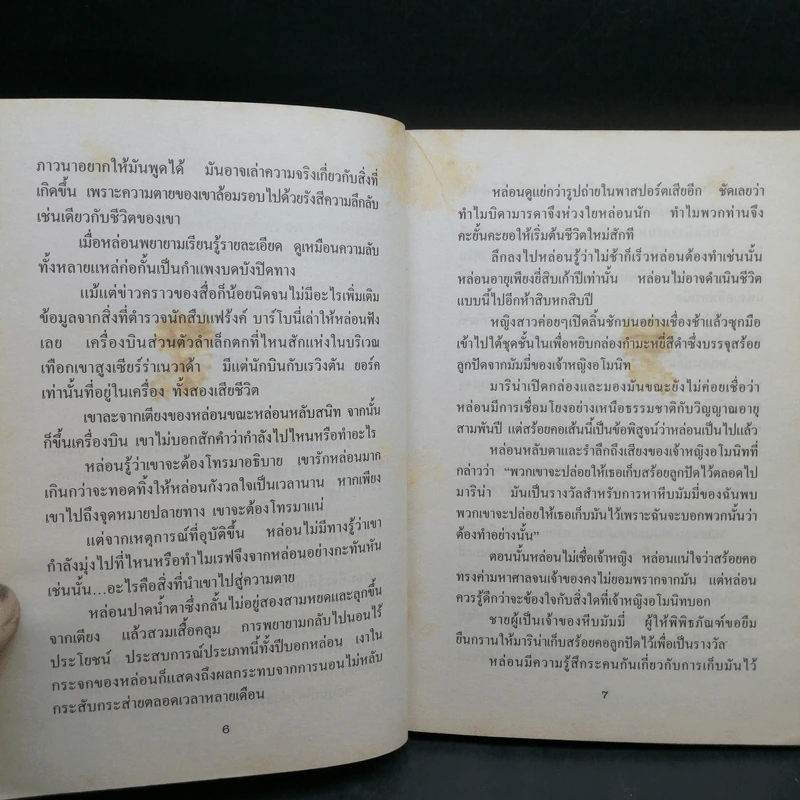 ภาวนาอยากให้มันพูดได้ มันอาจเล่าความจริงเกี่ยวกับสิ่งที่
เกิดขึ้น เพราะความตายของเขาล้อมรอบไปด้วยรังสีความลึกลับ
เช่นเดียวกับชีวิตของเขา
เมื่อหล่อนพยายามเรียนรู้รายละเอียด ดูเหมือนความลับ
ทั้งหลายแหล่ก่อกั้นเป็นกำแพงบดบังปิดทาง
แม้แต่ข่าวคราวของสื่อก็น้อยนิดจนไม่มีอะไรเพิ่มเติม
ข้อมูลจากสิ่งที่ตำรวจนักสืบแฟร้งค์ บาร์โบนี่เล่าให้หล่อนฟัง
เลย เครื่องบินส่วนตัวลำเล็กตกที่ไหนสักแห่งในบริเวณ
เทือกเขาสูงเซียร์ร่าเนวาด้า มีแต่นักบินกับเรวิงตัน ยอร์ค
เท่านั้นที่อยู่ในเครื่อง ทั้งสองเสียชีวิต
เขาละจากเตียงของหล่อนขณะหล่อนหลับสนิท จากนั้น
ก็ขึ้นเครื่องบิน เขาไม่บอกสักคำว่ากำลังไปไหนหรือทำอะไร
หล่อนรู้ว่าเขาจะต้องโทรมาอธิบาย เขารักหล่อนมาก
เกินกว่าจะทอดทิ้งให้หล่อนกังวลใจเป็นเวลานาน หากเพียง
เขาไปถึงจุดหมายปลายทาง เขาจะต้องโทรมาแน่
แต่จากเหตุการณ์ที่อุบัติขึ้น หล่อนไม่มีทางรู้ว่าเขา
กำลังมุ่งไปที่ไหนหรือทำไมเรฟจึงจากหล่อนอย่างกะทันหัน
เช่นนั้น...อะไรคือสิ่งที่นำเขาไปสู่ความตาย
หล่อนปาดน้ำตาซึ่งกลั้นไม่อยู่สองสามหยดและลุกขึ้น
จากเตียง แล้วสวมเสื้อคลุม การพยายามกลับไปนอนไร้
ประโยชน์ ประสบการณ์ประเภทนี้ทั้งปีบอกหล่อน เงาใน
กระจกของหล่อนก็แสดงถึงผลกระทบจากการนอนไม่หลับ
กระสับกระส่ายตลอดเวลาหลายเดือน
6
หล่อนดูแย่กว่ารูปถ่ายในพาสปอร์ตเสียอีก ชัดเลยว่า
ทำไมบิดามารดาจึงห่วงใยหล่อนนัก ทำไมพวกท่านจึง
คะยั้นคะยอให้เริ่มต้นชีวิตใหม่สักที
ลึกลงไปหล่อนรู้ว่าไม่ช้าก็เร็วหล่อนต้องทำเช่นนั้น
หล่อนอายุเพียงยี่สิบเก้าปีเท่านั้น หล่อนไม่อาจดำเนินชีวิต
แบบนี้ไปอีกห้าสิบหกสิบปี
หญิงสาวค่อยๆเปิดลิ้นชักบนอย่างเชื่องช้าแล้วซุกมือ
เข้าไปใต้ชุดชั้นในเพื่อหยิบกล่องกำมะหยี่สีดำซึ่งบรรจุสร้อย
ลูกปัดจากมัมมี่ของเจ้าหญิงอโมนิท
มาริน่าเปิดกล่องและมองมันขณะยังไม่ค่อยเชื่อว่า
หล่อนมีการเชื่อมโยงอย่างเหนือธรรมชาติกับวิญญาณอายุ
สามพันปี แต่สร้อยคอเส้นนี้เป็นข้อพิสูจน์ว่าหล่อนเป็นไปแล้ว
หล่อนหลับตาและรำลึกถึงเสียงของเจ้าหญิงอโมนิทที่
กล่าวว่า “พวกเขาจะปล่อยให้เธอเก็บสร้อยลูกปัดไว้ตลอดไป
มาริน่า มันเป็นรางวัลสำหรับการหาหีบมัมมี่ของฉันพบ
พวกเขาจะปล่อยให้เธอเก็บมันไว้เพราะฉันจะบอกพวกนั้นว่า
ต้องทำอย่างนั้น”
ตอนนั้นหล่อนไม่เชื่อเจ้าหญิง หล่อนแน่ใจว่าสร้อยคอ
ทรงค่ามหาศาลจนเจ้าของคงไม่ยอมพรากจากมัน แต่หล่อน
ควรรู้ดีกว่าจะข้องใจกับสิ่งใดที่เจ้าหญิงอโมนิทบอก
ชายผู้เป็นเจ้าของหีบมัมมี่ ผู้ให้พิพิธภัณฑ์ขอยืม
ยืนกรานให้มาริน่าเก็บสร้อยคอลูกปัดไว้เพื่อเป็นรางวัล
หล่อนมีความรู้สึกระคนกันเกี่ยวกับการเก็บมันไว้
7